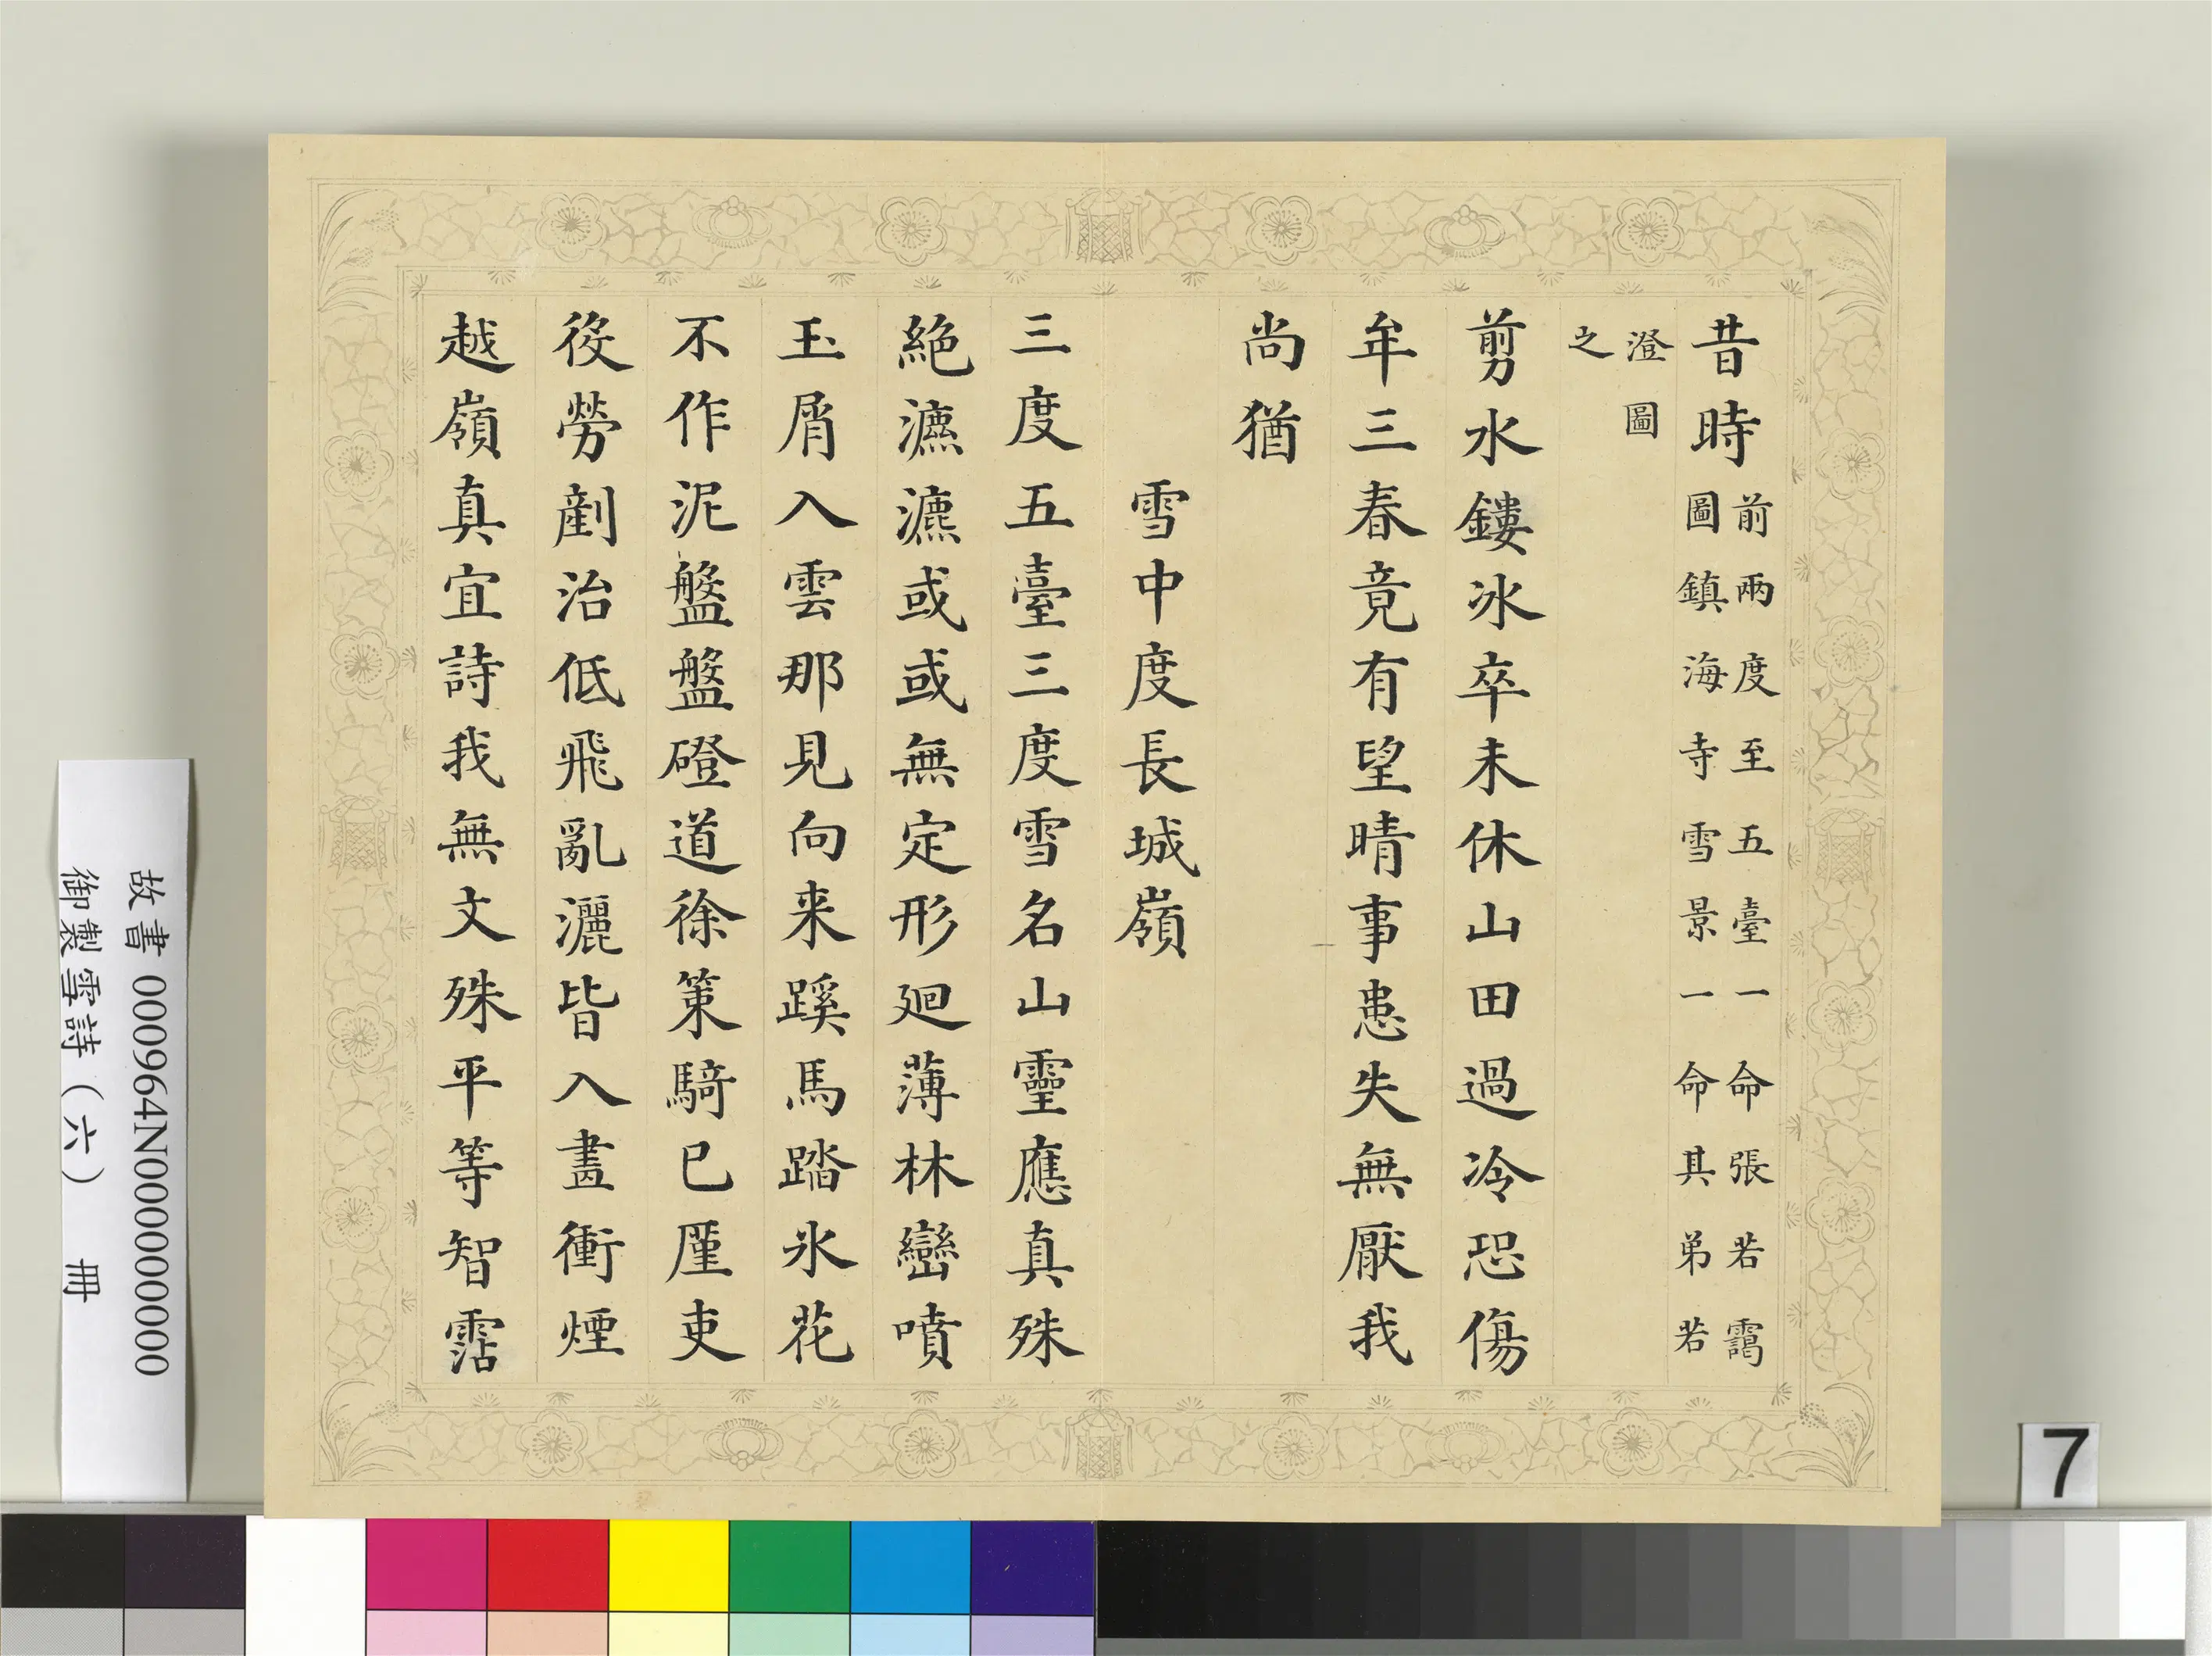 昔時
前兩度至五臺一命張若靄
圖鎮海寺雪景一命其弟若
澄圖
之
剪水鏤冰卒未休山田過冷恐傷
牟三春竟有望晴事患失無厭我
尚猶
雪中度長城嶺
三度五臺三度雪名山靈應真殊
絶瀌瀌或或無定形廻薄林巒噴
玉屑入雲那見向来蹊馬踏氷花
不作泥盤盤磴道徐策騎已廑吏
役勞剷治低飛亂灑皆入畫衝煙
越嶺真宜詩我無文殊平等智霑
故書 000964N000000000
御製雪詩（六） 冊
7